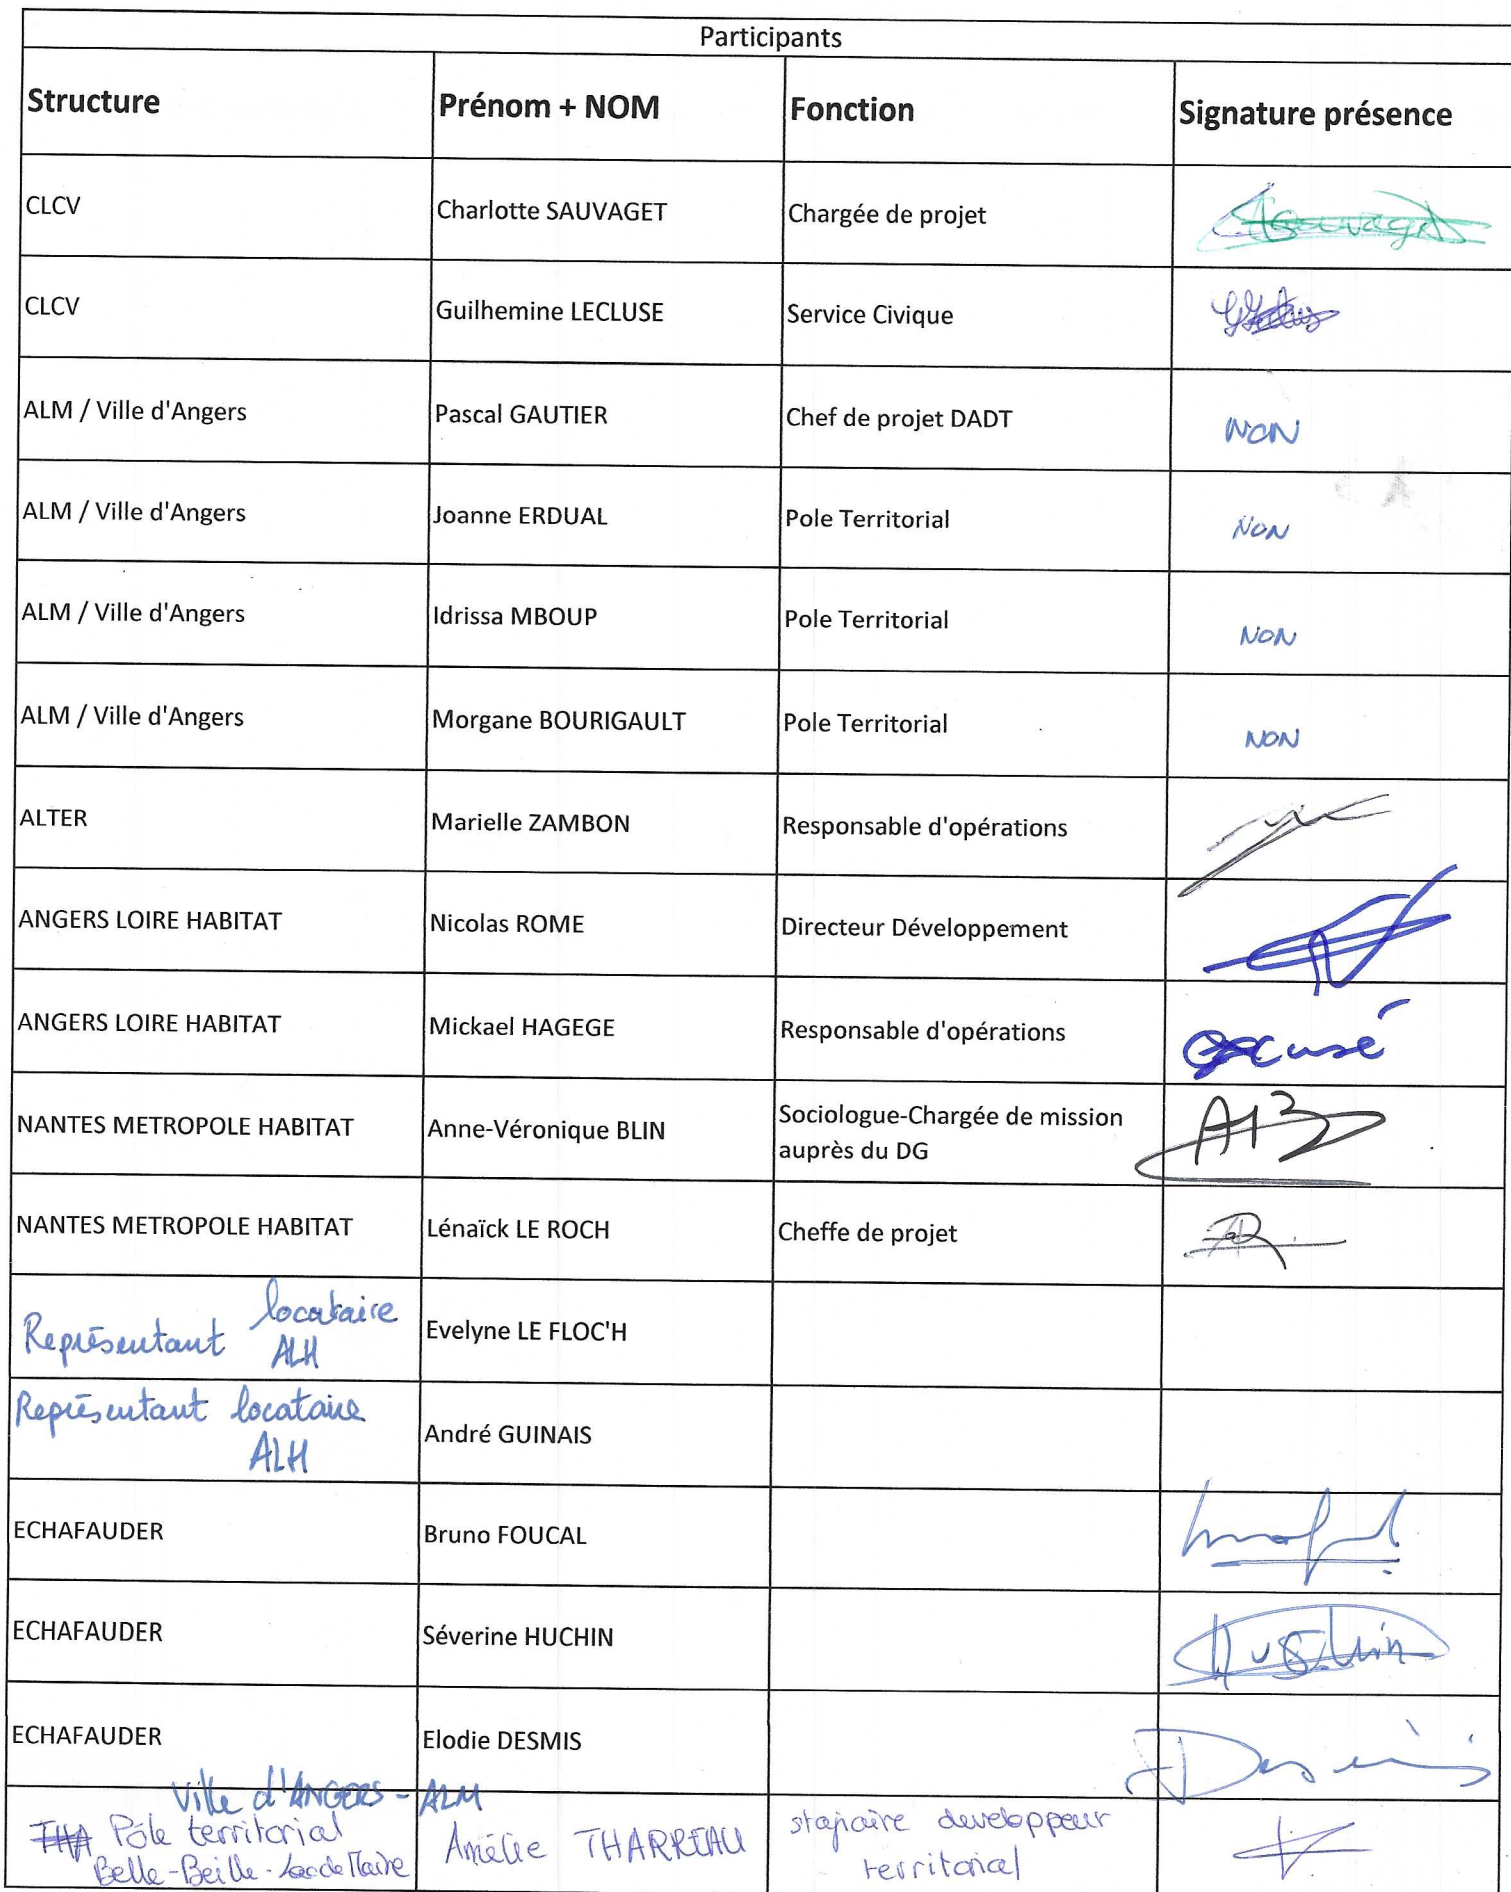 Participants
Structure Prénom + NOM Fonction Signature présence
CLCV Charlotte SAUVAGET Chargée de projet
CLCV Guilhemine LECLUSE Service Civique
ALM / Ville d'Angers Pascal GAUTIER Chef de projet DADT NON
ALM / Ville d'Angers Joanne ERDUAL Pole Territorial NON
ALM / Ville d'Angers Idrissa MBOUP Pole Territorial NON
ALM / Ville d'Angers Morgane BOURIGAULT Pole Territorial NON
ALTER Marielle ZAMBON Responsable d'opérations
ANGERS LOIRE HABITAT Nicolas ROME Directeur Développement
ANGERS LOIRE HABITAT Mickael HAGEGE Responsable d'opérations excusé
NANTES METROPOLE HABITAT Anne-Véronique BLIN Sociologue-Chargée de mission
auprès du DG
NANTES METROPOLE HABITAT Lénaïck LE ROCH Cheffe de projet
Représentant locataire
ALH
Evelyne LE FLOC'H
Représentant locataire
ALH
André GUINAIS
ECHAFAUDER Bruno FOUCAL
ECHAFAUDER Séverine HUCHIN
ECHAFAUDER Elodie DESMIS
Ville d'ANGERS - ALM
Pôle territorial
Belle-Beille - Lac de Maine
Amélie THARREAU
stagiaire developpeur
territorial